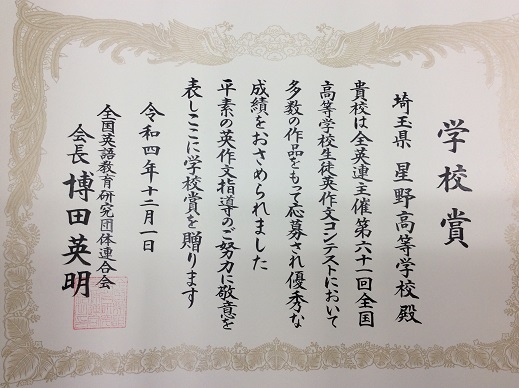 学校賞
埼玉県 星野高等学校殿
貴校は全英連主催第六十一回全国
高等学校生徒英作文コンテストにおいて
多数の作品をもって応募され優秀な
成績をおさめられました
平素の英作文指導のご努力に敬意を
表しここに学校賞を贈ります
令和四年十二月一日
全国英語教育研究団体連合会
会長 博田英明